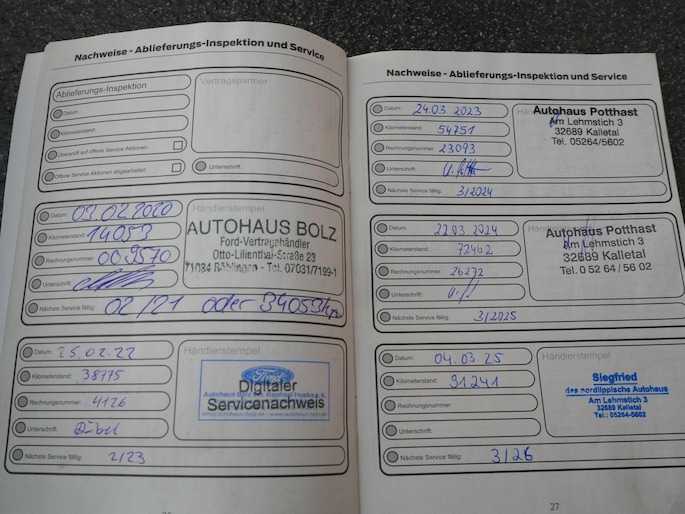 Nachweise - Ablieferungs-Inspektion und Service
Ablieferungs-Inspektion
Vertragspartner
Datum:
Kilometerstand:
Überprüft auf offene Service Aktionen:
Offene Service Aktionen abgearbeitet:
Unterschrift:
Datum: 03.02.2020
Händlerstempel
Kilometerstand: 14053
AUTOHAUS BOLZ
Ford-Vertragshändler
Rechnungsnummer: 009570
Otto-Lilienthal-Straße 23
71034 Böblingen - Tel. 07031/7199-1
Unterschrift:
Nächste Service fällig: 02/21 oder 34053km
Datum: 25.02.22
Händlerstempel
Kilometerstand: 38775
Ford
Digitaler
Servicenachweis
Rechnungsnummer: 4126
Unterschrift:
Nächste Service fällig: 2/23
Nachweise - Ablieferungs-Inspektion und Service
Datum: 24.03 2023
Autohaus Potthast
Am Lehmstich 3
32689 Kalletal
Tel. 05264/5602
Kilometerstand: 54751
Rechnungsnummer: 23093
Unterschrift:
Nächste Service fällig: 3/2024
Datum: 22.03 2024
Autohaus Potthast
Am Lehmstich 3
32689 Kalletal
Tel. 0 52 64 / 56 02
Kilometerstand: 72462
Rechnungsnummer: 26272
Unterschrift:
Nächste Service fällig: 3/2025
Datum: 04.03 25
Händlerstempel
Kilometerstand: 91241
Siegfried
das nordlippische Autohaus
Am Lehmstich 3
32689 Kalletal
Tel.: 05264-5602
Rechnungsnummer:
Unterschrift:
Nächste Service fällig: 3/26
27